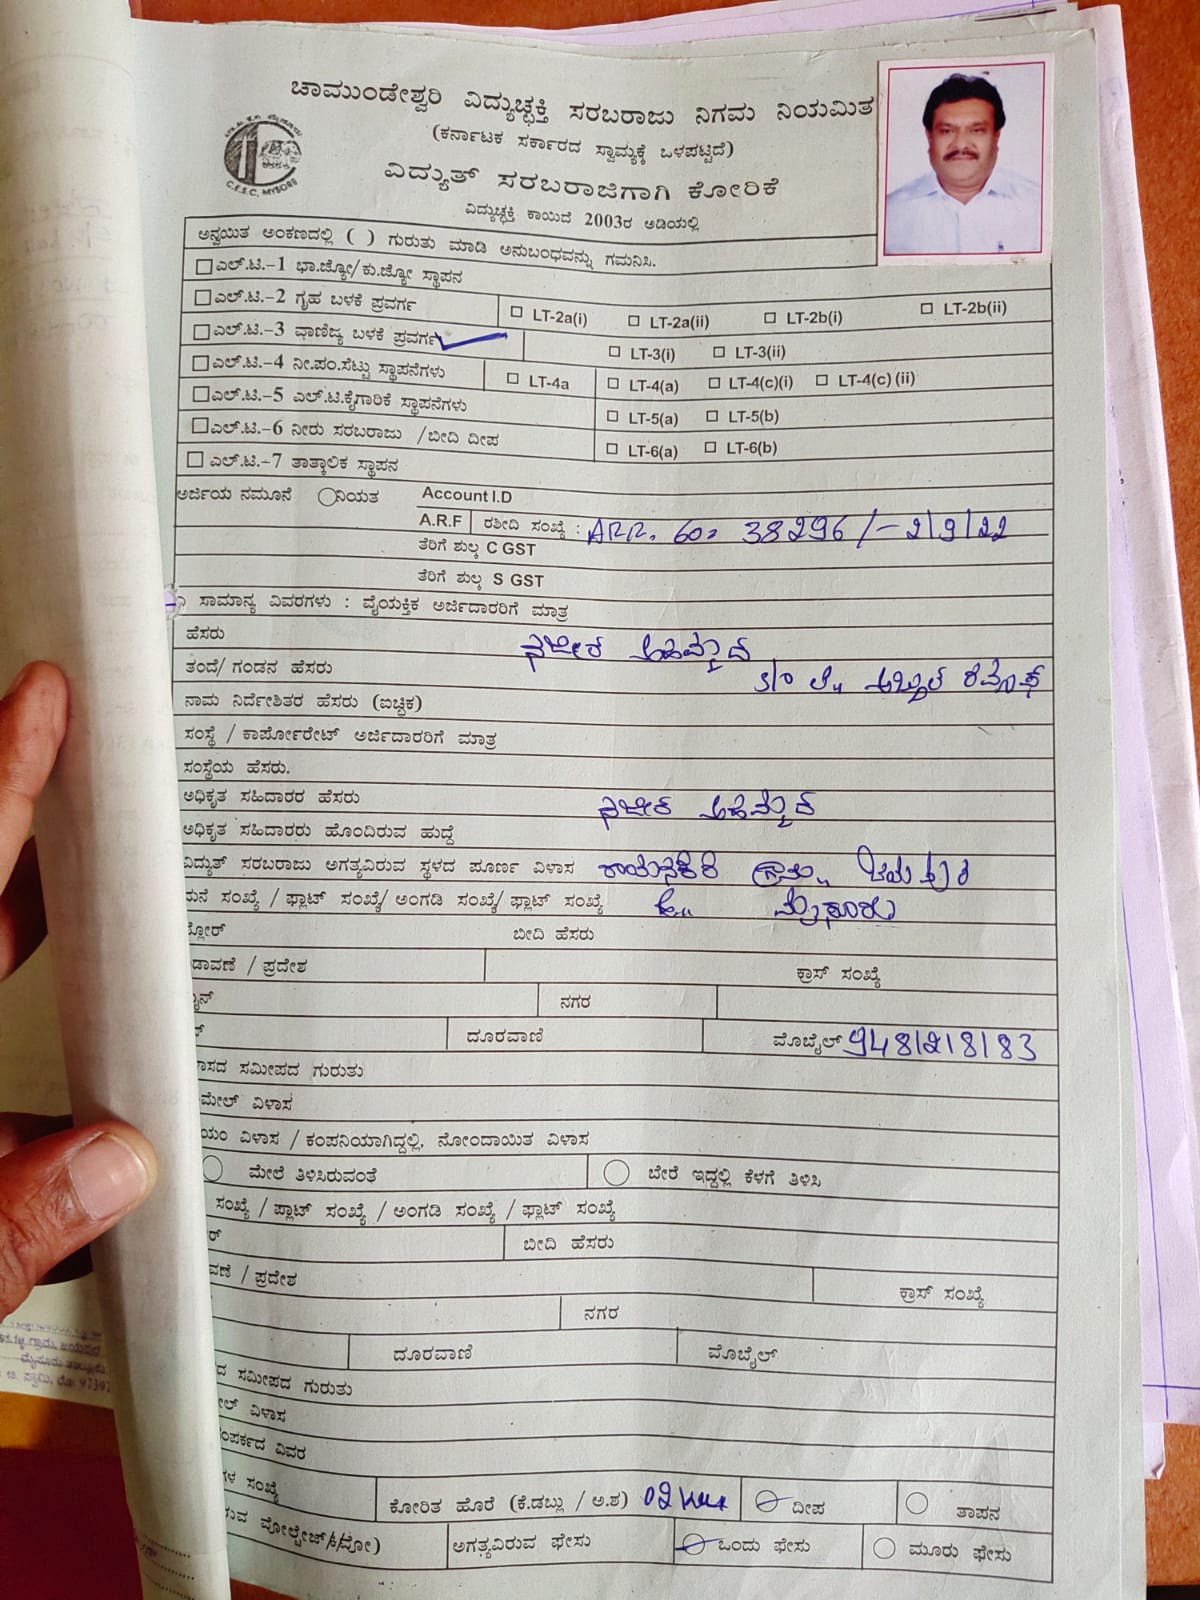 ಚಾಮುಂಡೇಶ್ವರಿ ವಿದ್ಯುಚ್ಛಕ್ತಿ ಸರಬರಾಜು ನಿಗಮ ನಿಯಮಿತ
(ಕರ್ನಾಟಕ ಸರ್ಕಾರದ ಸ್ವಾಮ್ಯಕ್ಕೆ ಒಳಪಟ್ಟಿದೆ)
C.E.S.C, MYSORE
ವಿದ್ಯುತ್ ಸರಬರಾಜಿಗಾಗಿ ಕೋರಿಕೆ
ವಿದ್ಯುಚ್ಛಕ್ತಿ ಕಾಯಿದೆ 2003ರ ಅಡಿಯಲ್ಲಿ
ಅನ್ವಯಿತ ಅಂಕಣದಲ್ಲಿ ( ) ಗುರುತು ಮಾಡಿ ಅನುಬಂಧವನ್ನು ಗಮನಿಸಿ.
ಎಲ್.ಟಿ.–1 ಭಾ.ಜ್ಯೋ/ಕು.ಜ್ಯೋ ಸ್ಥಾಪನ
ಎಲ್.ಟಿ.–2 ಗೃಹ ಬಳಕೆ ಪ್ರವರ್ಗ LT-2a(i) LT-2a(ii) LT-2b(i) LT-2b(ii)
ಎಲ್.ಟಿ.–3 ವಾಣಿಜ್ಯ ಬಳಕೆ ಪ್ರವರ್ಗ LT-3(i) LT-3(ii)
ಎಲ್.ಟಿ.–4 ನೀ.ಪಂ.ಸೆಟ್ಟು ಸ್ಥಾಪನೆಗಳು LT-4a LT-4(a) LT-4(c)(i) LT-4(c) (ii)
ಎಲ್.ಟಿ.–5 ಎಲ್.ಟಿ.ಕೈಗಾರಿಕೆ ಸ್ಥಾಪನೆಗಳು LT-5(a) LT-5(b)
ಎಲ್.ಟಿ.–6 ನೀರು ಸರಬರಾಜು /ಬೀದಿ ದೀಪ LT-6(a) LT-6(b)
ಎಲ್.ಟಿ.–7 ತಾತ್ಕಾಲಿಕ ಸ್ಥಾಪನ
ಅರ್ಜಿಯ ನಮೂನೆ ನಿಯತ Account I.D
A.R.F ರಶೀದಿ ಸಂಖ್ಯೆ : 38296/– 2/9/22
ತೆರಿಗೆ ಶುಲ್ಕ C GST
ತೆರಿಗೆ ಶುಲ್ಕ S GST
ಸಾಮಾನ್ಯ ವಿವರಗಳು : ವೈಯಕ್ತಿಕ ಅರ್ಜಿದಾರರಿಗೆ ಮಾತ್ರ
ಹೆಸರು ನಜೀರ ಅಹಮ್ಮದ
ತಂದೆ/ ಗಂಡನ ಹೆಸರು S/o
ನಾಮ ನಿರ್ದೇಶಿತರ ಹೆಸರು (ಐಚ್ಛಿಕ)
ಸಂಸ್ಥೆ / ಕಾರ್ಪೋರೇಟ್ ಅರ್ಜಿದಾರರಿಗೆ ಮಾತ್ರ
ಸಂಸ್ಥೆಯ ಹೆಸರು.
ಅಧಿಕೃತ ಸಹಿದಾರರ ಹೆಸರು ನಜೀರ ಅಹಮ್ಮದ
ಅಧಿಕೃತ ಸಹಿದಾರರು ಹೊಂದಿರುವ ಹುದ್ದೆ
ವಿದ್ಯುತ್ ಸರಬರಾಜು ಅಗತ್ಯವಿರುವ ಸ್ಥಳದ ಪೂರ್ಣ ವಿಳಾಸ
ಮನೆ ಸಂಖ್ಯೆ / ಫ್ಲಾಟ್ ಸಂಖ್ಯೆ/ ಅಂಗಡಿ ಸಂಖ್ಯೆ/ ಫ್ಲಾಟ್ ಸಂಖ್ಯೆ ಮೈಸೂರು
ಬೀದಿ ಹೆಸರು
ಡಾವಣೆ / ಪ್ರದೇಶ ಕ್ರಾಸ್ ಸಂಖ್ಯೆ
ನಗರ
ದೂರವಾಣಿ ಮೊಬೈಲ್ 9481218183
ಸದ ಸಮೀಪದ ಗುರುತು
ಮೇಲ್ ವಿಳಾಸ
ಯಂ ವಿಳಾಸ / ಕಂಪನಿಯಾಗಿದ್ದಲ್ಲಿ, ನೋಂದಾಯಿತ ವಿಳಾಸ
ಮೇಲೆ ತಿಳಿಸಿರುವಂತೆ ಬೇರೆ ಇದ್ದಲ್ಲಿ ಕೆಳಗೆ ತಿಳಿಸಿ
ಸಂಖ್ಯೆ / ಪ್ಲಾಟ್ ಸಂಖ್ಯೆ / ಅಂಗಡಿ ಸಂಖ್ಯೆ / ಫ್ಲಾಟ್ ಸಂಖ್ಯೆ
ಬೀದಿ ಹೆಸರು
ವಣೆ / ಪ್ರದೇಶ ಕ್ರಾಸ್ ಸಂಖ್ಯೆ
ನಗರ
ದೂರವಾಣಿ ಮೊಬೈಲ್
ದ ಸಮೀಪದ ಗುರುತು
ಲ್ ವಿಳಾಸ
ಂಪರ್ಕದ ವಿವರ
ಗಳ ಸಂಖ್ಯೆ ಕೋರಿತ ಹೊರೆ (ಕೆ.ಡಬ್ಲು / ಅ.ಶ) 02 ದೀಪ ತಾಪನ
ರುವ ವೋಲ್ಟೇಜ್ ಅಗತ್ಯವಿರುವ ಫೇಸು ಒಂದು ಫೇಸು ಮೂರು ಫೇಸು